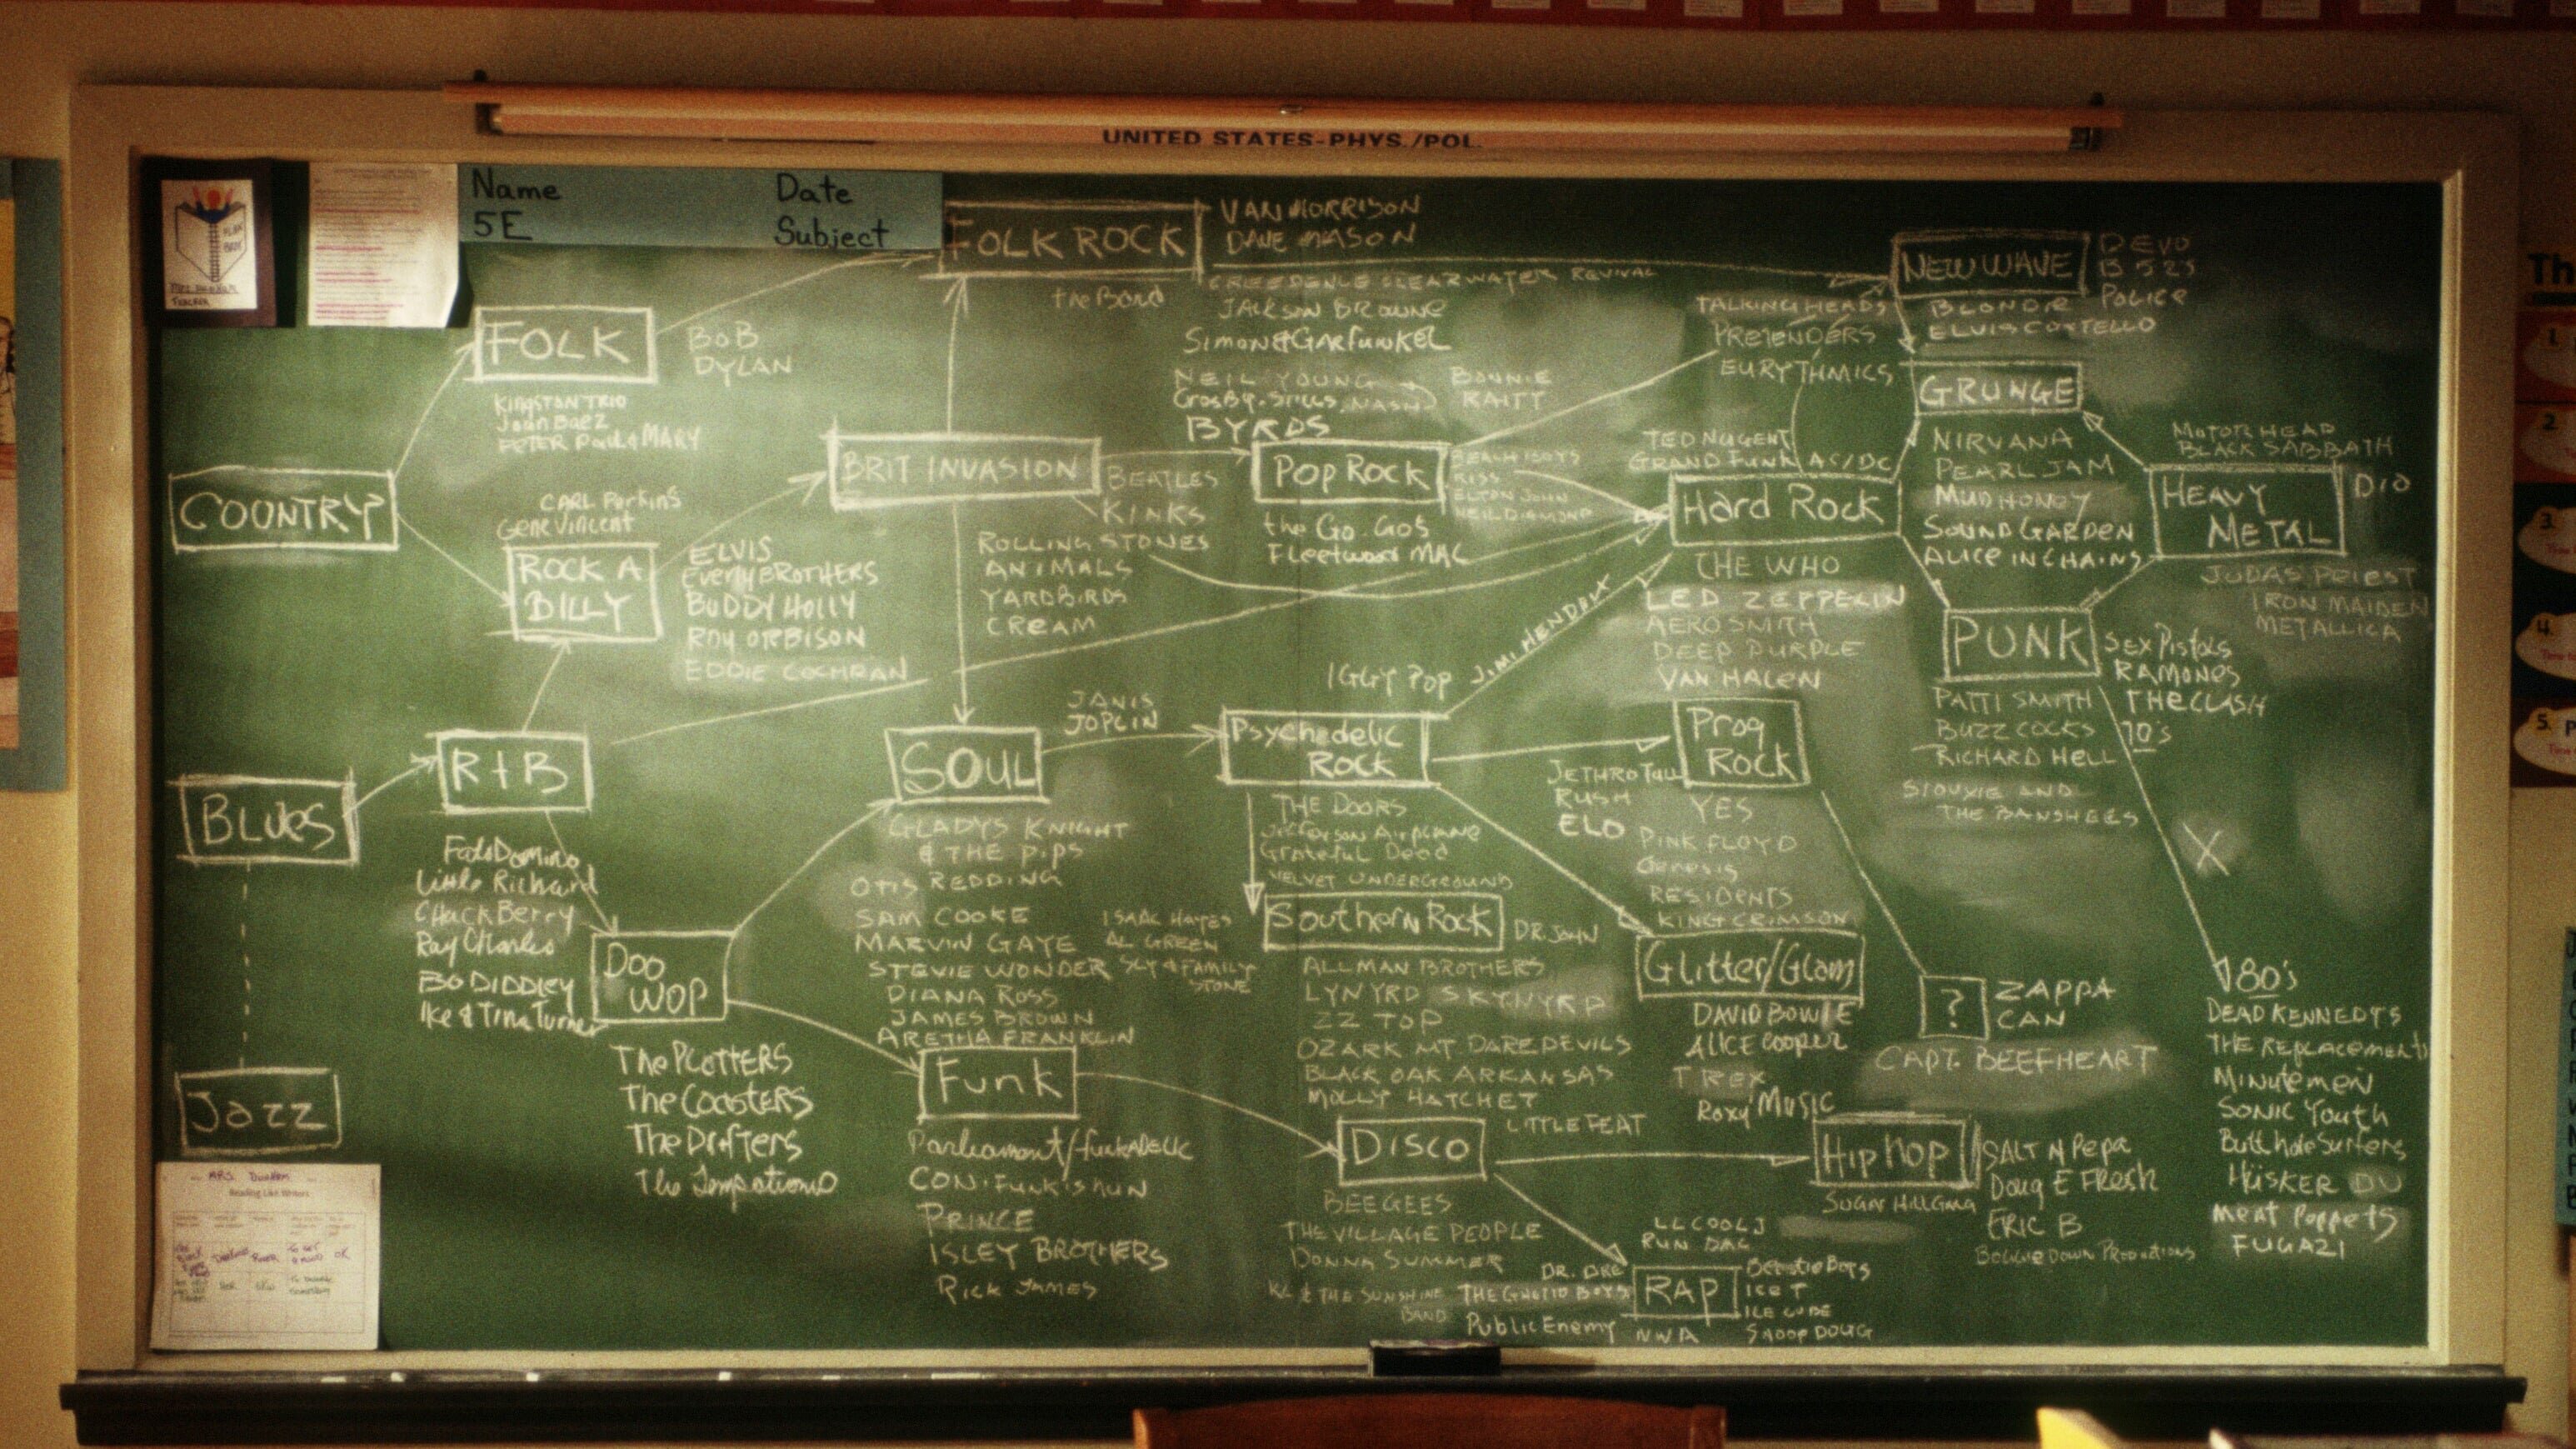 UNITED STATES-PHYS./POL.
Name
Date
5E
Subject
FOLK ROCK
the Band
VAN MORRISON
DAVE MASON
CREEDENCE CLEARWATER REVIVAL
JACKSON BROWNE
Simon & GarFunkel
NEIL YOUNG
Crosby. Stills. NASH
BYRDS
BONNIE
RAITT
NEW WAVE
DEVO
B 52s
Police
BLONDIE
ELVIS COSTELLO
TALKING HEADS
PRETENDERS
EURYTHMICS
FOLK
BOB
DYLAN
Kingston TRIO
Joan Baez
PETER Paul & MARY
COUNTRY
CARL Perkins
Gene Vincent
ROCK A
BILLY
ELVIS
Everly BROTHERS
BUDDY HOLLY
ROY ORBISON
EDDIE COCHRAN
BRIT INVASION
BEATLES
KINKS
ROLLING STONES
ANIMALS
YARDBIRDS
CREAM
POP ROCK
BEACH BOYS
KISS
ELTON JOHN
NEIL DIAMOND
the Go.Go's
Fleetwood MAC
TED NUGENT
GRAND FUNK AC/DC
Hard Rock
THE WHO
LED ZEPPELIN
AEROSMITH
DEEP PURPLE
VAN HALEN
GRUNGE
NIRVANA
PEARL JAM
MUDHONEY
SOUND GARDEN
ALICE IN CHAINS
MOTOR HEAD
BLACK SABBATH
HEAVY
METAL
DIO
JUDAS PRIEST
IRON MAIDEN
METALLICA
PUNK
Sex Pistols
RAMONES
THE CLASH
70's
PATTI SMITH
BUZZCOCKS
RICHARD HELL
SIOUXIE AND
THE BANSHEES
X
80's
DEAD KENNEDYS
THE REPLACEMENTS
Minutemen
SONIC Youth
Butthole Surfers
HÜSKER DU
Meat Puppets
FUGAZI
BLUES
R+B
Fats Domino
Little Richard
Chuck Berry
Ray Charles
BO DIDDLEY
Ike & Tina Turner
Jazz
DOO
WOP
The PLATTERS
The Coasters
The Drifters
The Temptations
SOUL
JANIS
JOPLIN
GLADYS KNIGHT
& THE PIPS
OTIS REDDING
SAM COOKE
MARVIN GAYE
STEVIE WONDER
DIANA ROSS
JAMES BROWN
ARETHA FRANKLIN
ISAAC HAYES
AL GREEN
SLY & FAMILY
STONE
Funk
Parliament/funkADELIC
CON.FUNK'SHUN
PRINCE
ISLEY BROTHERS
RICK JAMES
IGGY POP
JIMI HENDRIX
Psychedelic
Rock
THE DOORS
Jefferson Airplane
Grateful Dead
VELVET UNDERGROUND
Southern Rock
DR. JOHN
ALLMAN BROTHERS
LYNYRD SKYNYRD
ZZ TOP
OZARK MT DAREDEVILS
BLACK OAK ARKANSAS
MOLLY HATCHET
LITTLE FEAT
Prog
Rock
JETHRO Tull
RUSH
ELO
YES
PINK FLOYD
Genesis
RESIDENTS
KING CRIMSON
Glitter/Glam
DAVID BOWIE
ALICE Cooper
T REX
Roxy Music
?
ZAPPA
CAN
CAPT. BEEFHEART
DISCO
BEE GEES
THE VILLAGE PEOPLE
DONNA SUMMER
KC & THE SUNSHINE
BAND
Hip hop
SUGAR HILL GANG
SALT N Pepa
Doug E FResh
ERIC B
BOOGIE DOWN PRODUCTIONS
RAP
LL COOL J
RUN DMC
DR. DRE
THE GHETTO BOYS
Public Enemy
NWA
Beastie Boys
ICE T
ICE CUBE
SNOOP DOUG
MRS. Dunham
Reading Like Writers
1.
2.
3.
4.
5.